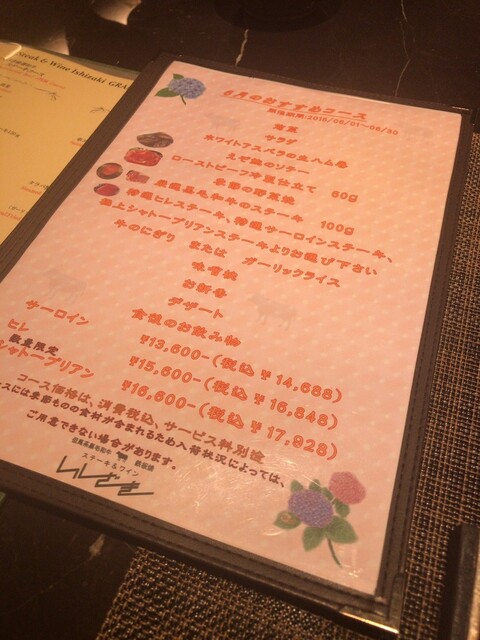 Steak & Wine Ishizaki GRA
6月のおすすめコース
開催期間:2018/06/01〜06/30
サラダ
ホワイトアスペラの生ハム巻
えぞ鮑のソテー
ローストビーフ冷製仕立て 60g
季節の野菜焼
黒毛和牛のステーキ 100g
特選ヒレステーキ、特選サーロインステーキ、
極上シャトーブリアンステーキよりお選び下さい
牛のにぎり または ガーリックライス
味噌椀
お新香
デザート
食後のお飲み物
サーロイン ¥13,600-(税込 ¥14,688)
ヒレ ¥15,600-(税込 ¥16,848)
数量限定
シャトーブリアン ¥16,600-(税込 ¥17,928)
コース価格は、消費税込、サービス料別途
スには季節ものの食材が含まれるため入荷状況によっては、
ご用意できない場合があります。
ステーキ&ワイン
いしざき